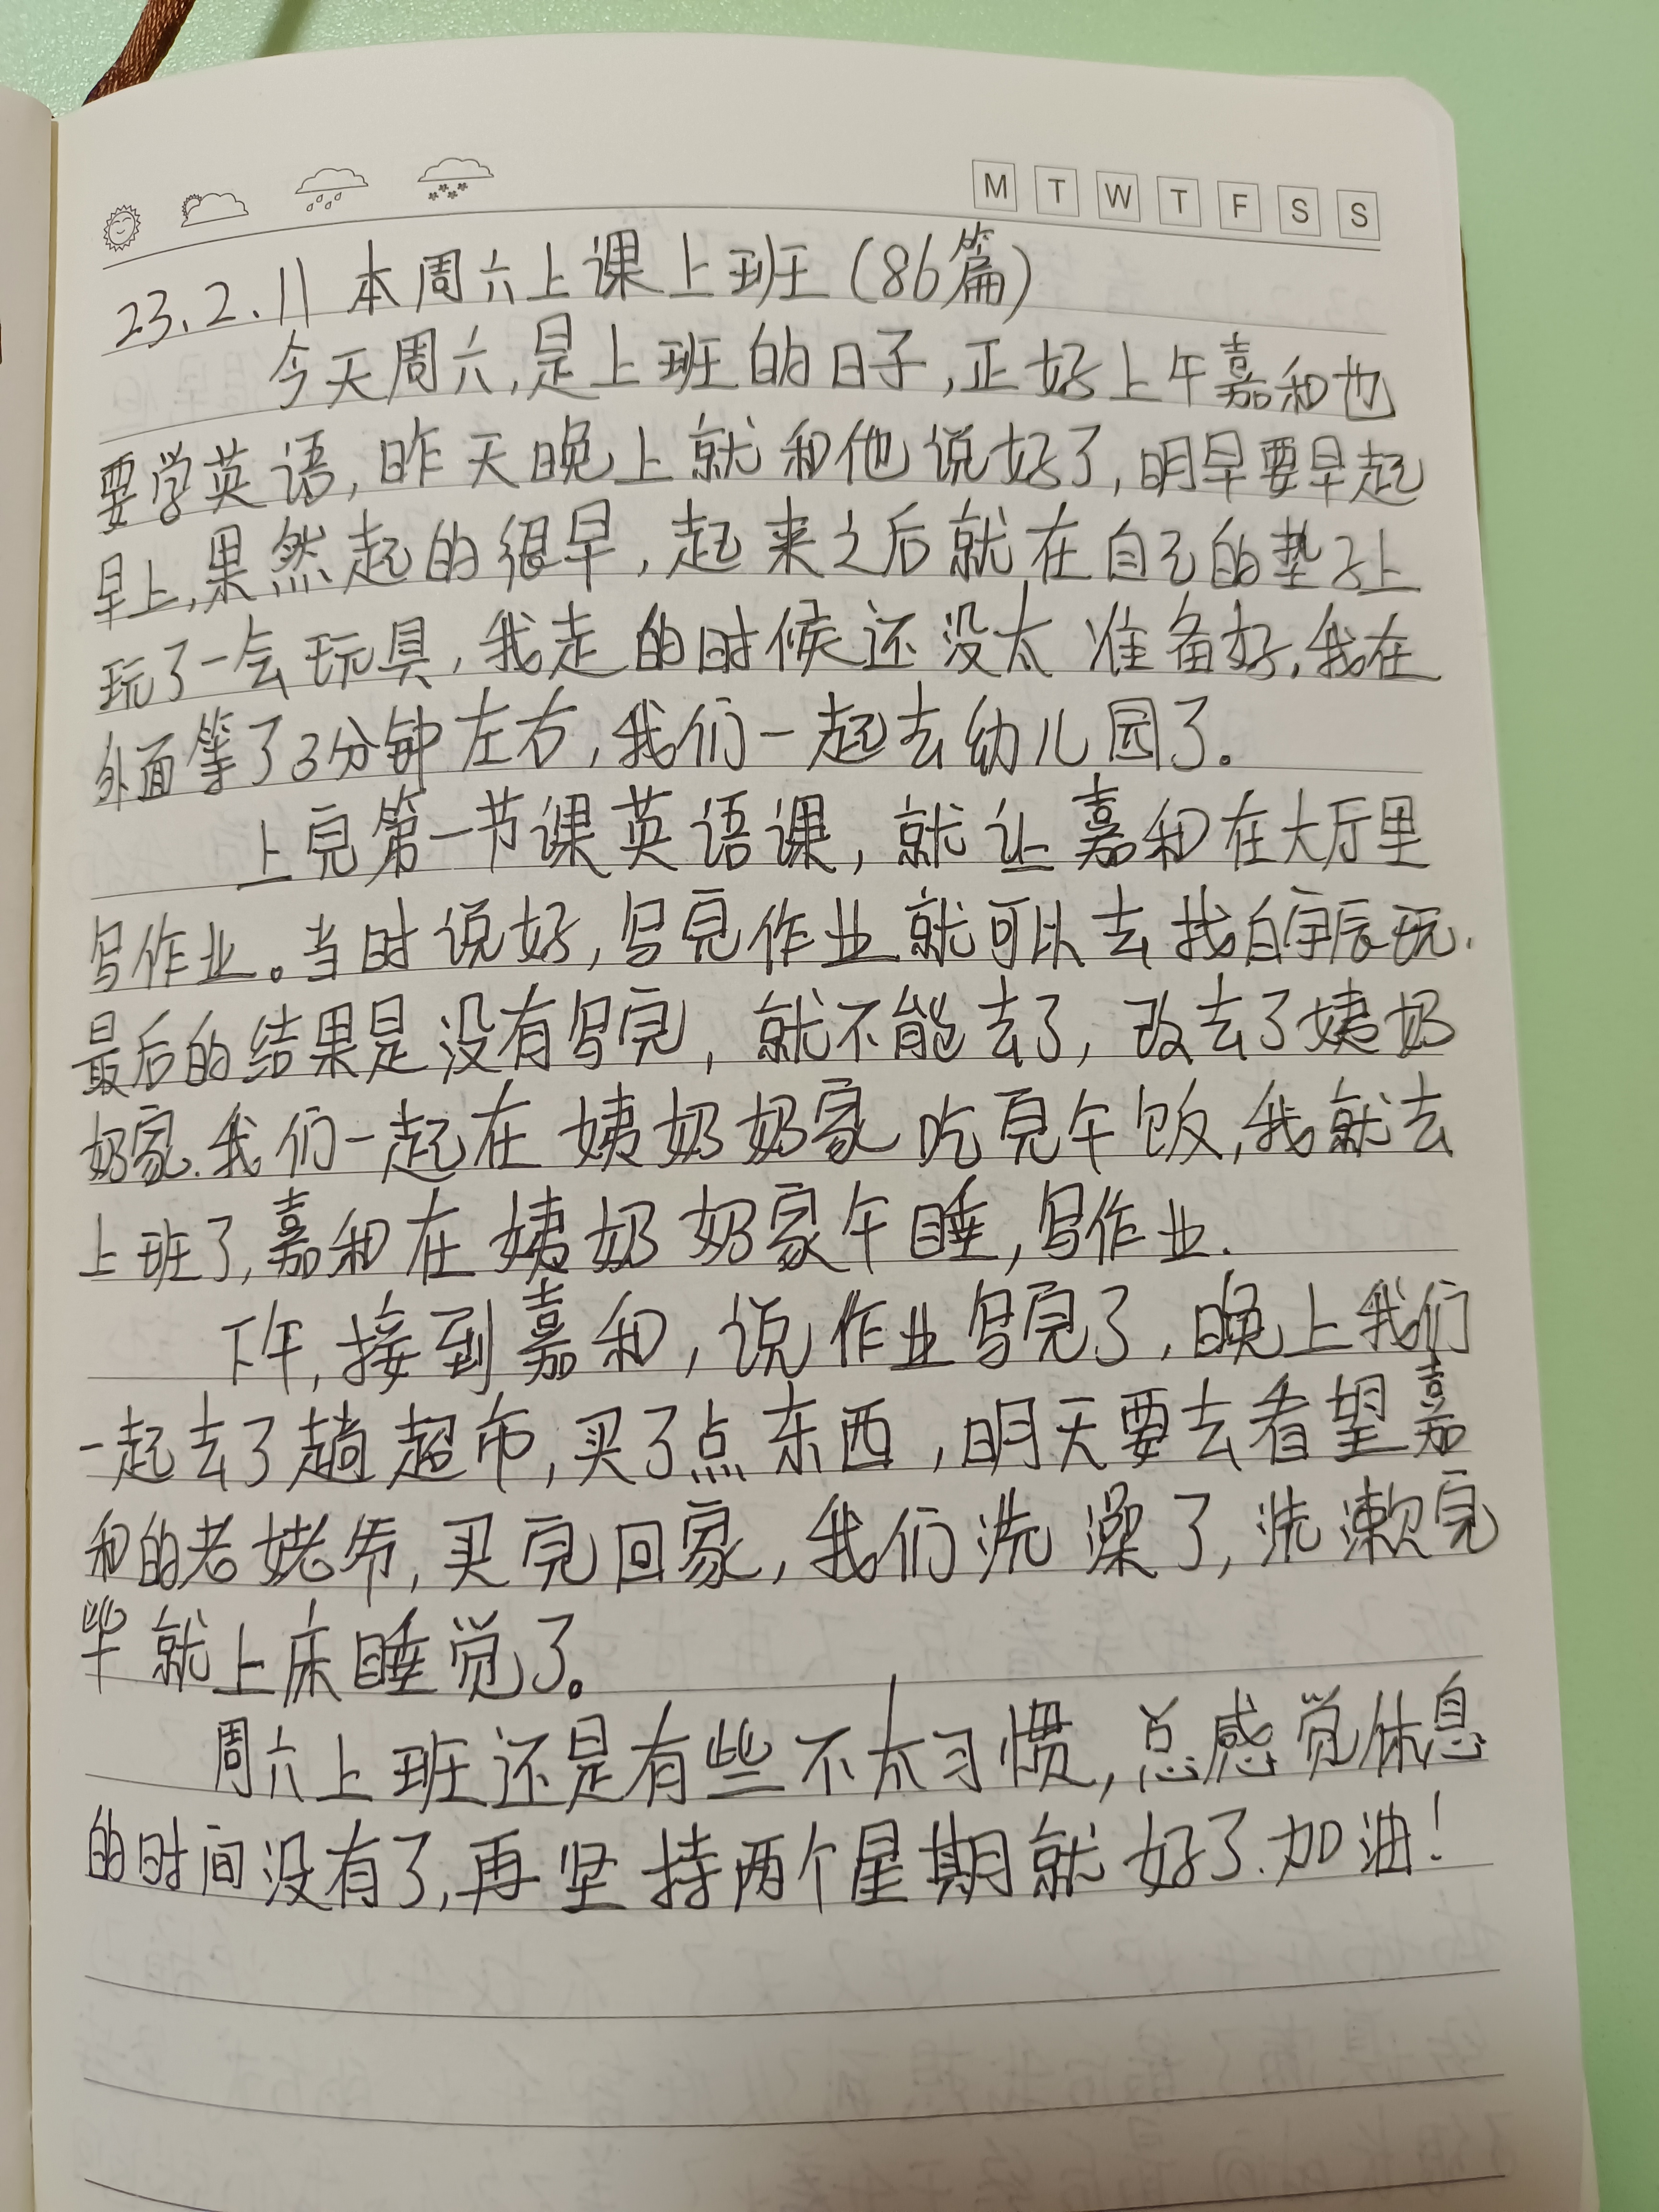 M T W T F S S
23.2.11 本周六上课上班(86篇)
今天周六,是上班的日子,正好上午嘉和也
要学英语,昨天晚上就和他说好了,明早要早起
早上,果然起的很早,起来之后就在自己的垫子上
玩了一会玩具,我走的时候还没太准备好,我在
外面等了3分钟左右,我们一起去幼儿园了。
上完第一节课英语课,就让嘉和在大厅里
写作业。当时说好,写完作业就可以去找白宇辰玩.
最后的结果是没有写完,就不能去了,改去了姨奶
奶家.我们一起在姨奶奶家吃完午饭,我就去
上班了,嘉和在姨奶奶家午睡,写作业.
下午,接到嘉和,说作业写完了,晚上我们
一起去了趟超市,买了点东西,明天要去看望嘉
和的老姥爷,买完回家,我们洗澡了,洗漱完
毕就上床睡觉了。
周六上班还是有些不太习惯,总感觉休息
的时间没有了,再坚持两个星期就好了.加油!